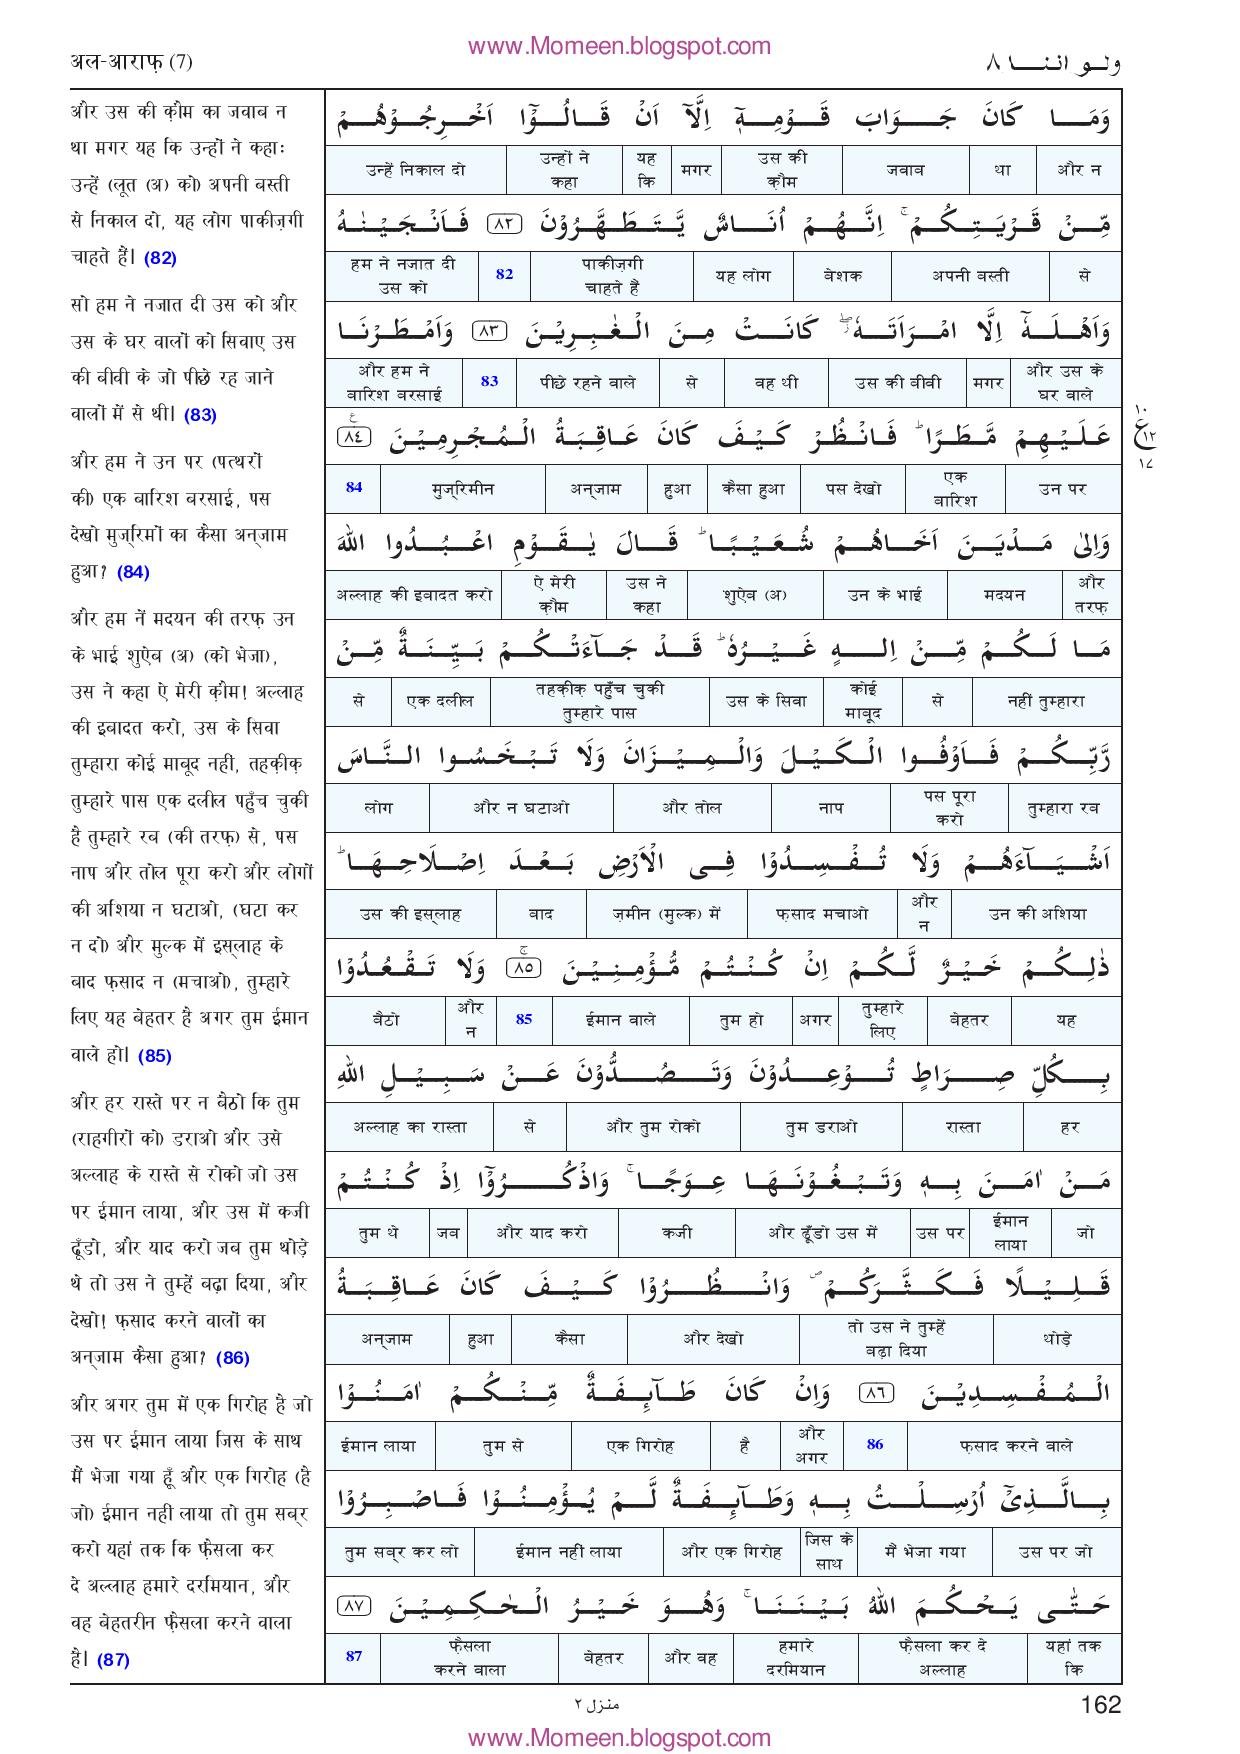 www.Momeen.blogspot.com
अल-आराफ़ (7)
ولو اننا ٨
और उस की क़ौम का जवाब न
था मगर यह कि उन्हों ने कहाः
उन्हें (लूत (अ) को) अपनी बस्ती
से निकाल दो, यह लोग पाकीज़गी
चाहते हैं। (82)
सो हम ने नजात दी उस को और
उस के घर वालों को सिवाए उस
की बीवी के जो पीछे रह जाने
वालों में से थी। (83)
और हम ने उन पर (पत्थरों
की) एक बारिश बरसाई, पस
देखो मुज्रिमों का कैसा अन्जाम
हुआ? (84)
और हम नें मदयन की तरफ़ उन
के भाई शुऐब (अ) (को भेजा),
उस ने कहा ऐ मेरी क़ौम! अल्लाह
की इबादत करो, उस के सिवा
तुम्हारा कोई माबूद नहीं, तहक़ीक़
तुम्हारे पास एक दलील पहुँच चुकी
है तुम्हारे रब (की तरफ़) से, पस
नाप और तोल पूरा करो और लोगों
की अशिया न घटाओ, (घटा कर
न दो) और मुल्क में इस्लाह के
बाद फ़साद न (मचाओ), तुम्हारे
लिए यह बेहतर है अगर तुम ईमान
वाले हो। (85)
और हर रास्ते पर न बैठो कि तुम
(राहगीरों को) डराओ और उसे
अल्लाह के रास्ते से रोको जो उस
पर ईमान लाया, और उस में कजी
ढूँडो, और याद करो जब तुम थोड़े
थे तो उस ने तुम्हें बढ़ा दिया, और
देखो! फ़साद करने वालों का
अन्जाम कैसा हुआ? (86)
और अगर तुम में एक गिरोह है जो
उस पर ईमान लाया जिस के साथ
मैं भेजा गया हूँ और एक गिरोह (है
जो) ईमान नहीं लाया तो तुम सब्र
करो यहां तक कि फ़ैसला कर
दे अल्लाह हमारे दरमियान, और
वह बेहतरीन फ़ैसला करने वाला
है। (87)
وَمَا كَانَ جَوَابَ قَوْمِهٖٓ اِلَّآ اَنْ قَالُوْٓا اَخْرِجُوْهُمْ
और न था जवाब उस की क़ौम मगर यह कि उन्हों ने कहा उन्हें निकाल दो
مِّنْ قَرْيَتِكُمْ ۚ اِنَّهُمْ اُنَاسٌ يَّتَطَهَّرُوْنَ ٨٢ فَاَنْجَيْنٰهُ
से अपनी बस्ती बेशक यह लोग पाकीज़गी चाहते हैं 82 हम ने नजात दी उस को
وَاَهْلَهٗٓ اِلَّا امْرَاَتَهٗ ۖ كَانَتْ مِنَ الْغٰبِرِيْنَ ٨٣ وَاَمْطَرْنَا
और उस के घर वाले मगर उस की बीवी वह थी से पीछे रहने वाले 83 और हम ने बारिश बरसाई
عَلَيْهِمْ مَّطَرًا ۭ فَانْظُرْ كَيْفَ كَانَ عَاقِبَةُ الْمُجْرِمِيْنَ ٨٤ ع
१० ع ١٢ ١٧
उन पर एक बारिश पस देखो कैसा हुआ हुआ अन्जाम मुज्रिमीन 84
وَاِلٰى مَدْيَنَ اَخَاهُمْ شُعَيْبًا ۭ قَالَ يٰقَوْمِ اعْبُدُوا اللّٰهَ
और तरफ़ मदयन उन के भाई शुऐब (अ) उस ने कहा ऐ मेरी क़ौम अल्लाह की इबादत करो
مَا لَكُمْ مِّنْ اِلٰهٍ غَيْرُهٗ ۭ قَدْ جَآءَتْكُمْ بَيِّنَةٌ مِّنْ
नहीं तुम्हारा से कोई माबूद उस के सिवा तहक़ीक़ पहुँच चुकी तुम्हारे पास एक दलील से
رَّبِّكُمْ فَاَوْفُوا الْكَيْلَ وَالْمِيْزَانَ وَلَا تَبْخَسُوا النَّاسَ
तुम्हारा रब पस पूरा करो नाप और तोल और न घटाओ लोग
اَشْيَآءَهُمْ وَلَا تُفْسِدُوْا فِى الْاَرْضِ بَعْدَ اِصْلَاحِهَا ۭ
उन की अशिया और न फ़साद मचाओ ज़मीन (मुल्क) में बाद उस की इस्लाह
ذٰلِكُمْ خَيْرٌ لَّكُمْ اِنْ كُنْتُمْ مُّؤْمِنِيْنَ ٨٥ ۚ وَلَا تَقْعُدُوْا
यह बेहतर तुम्हारे लिए अगर तुम हो ईमान वाले 85 और न बैठो
بِكُلِّ صِرَاطٍ تُوْعِدُوْنَ وَتَصُدُّوْنَ عَنْ سَبِيْلِ اللّٰهِ
हर रास्ता तुम डराओ और तुम रोको से अल्लाह का रास्ता
مَنْ اٰمَنَ بِهٖ وَتَبْغُوْنَهَا عِوَجًا ۚ وَاذْكُرُوْٓا اِذْ كُنْتُمْ
जो ईमान लाया उस पर और ढूँडो उस में कजी और याद करो जब तुम थे
قَلِيْلًا فَكَثَّرَكُمْ ۠ وَانْظُرُوْا كَيْفَ كَانَ عَاقِبَةُ
थोड़े तो उस ने तुम्हें बढ़ा दिया और देखो कैसा हुआ अन्जाम
الْمُفْسِدِيْنَ ٨٦ وَاِنْ كَانَ طَآىِٕفَةٌ مِّنْكُمْ اٰمَنُوْا
फ़साद करने वाले 86 और अगर है एक गिरोह तुम से ईमान लाया
بِالَّذِيْٓ اُرْسِلْتُ بِهٖ وَطَآىِٕفَةٌ لَّمْ يُؤْمِنُوْا فَاصْبِرُوْا
उस पर जो मैं भेजा गया जिस के साथ और एक गिरोह ईमान नहीं लाया तुम सब्र कर लो
حَتّٰى يَحْكُمَ اللّٰهُ بَيْنَنَا ۚ وَهُوَ خَيْرُ الْحٰكِمِيْنَ ٨٧
यहां तक कि फ़ैसला कर दे अल्लाह हमारे दरमियान और वह बेहतर फ़ैसला करने वाला 87
منزل ٢
162
www.Momeen.blogspot.com